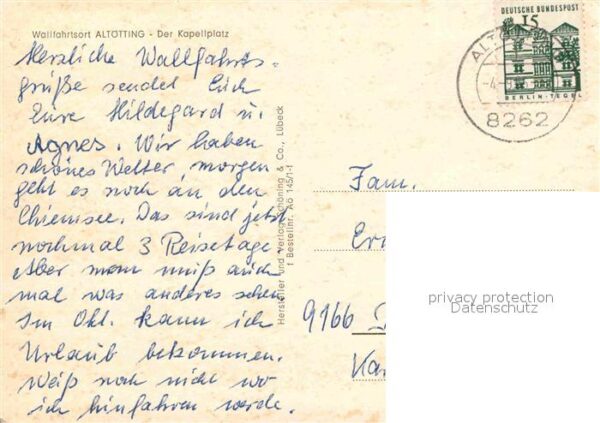 Wallfahrtsort ALTÖTTING - Der Kapellplatz
Herzliche Wallfahrts-
grüße sendet Euch
Eure Hildegard u.
Agnes. Wir haben
schönes Wetter, morgen
geht es noch an den
Chiemsee. Das sind jetzt
nochmal 3 Reisetage.
Aber man muß auch
mal was anderes sehen.
Im Okt. kann ich
Urlaub bekommen.
Weiß noch nicht wo
ich hinfahren werde.
Hersteller und Verlag Schöning & Co., Lübeck
Bestellnr. AÖ 145/1-f
DEUTSCHE BUNDESPOST
15
BERLIN-TEGEL
8262
Fam.
9166
privacy protection
Datenschutz